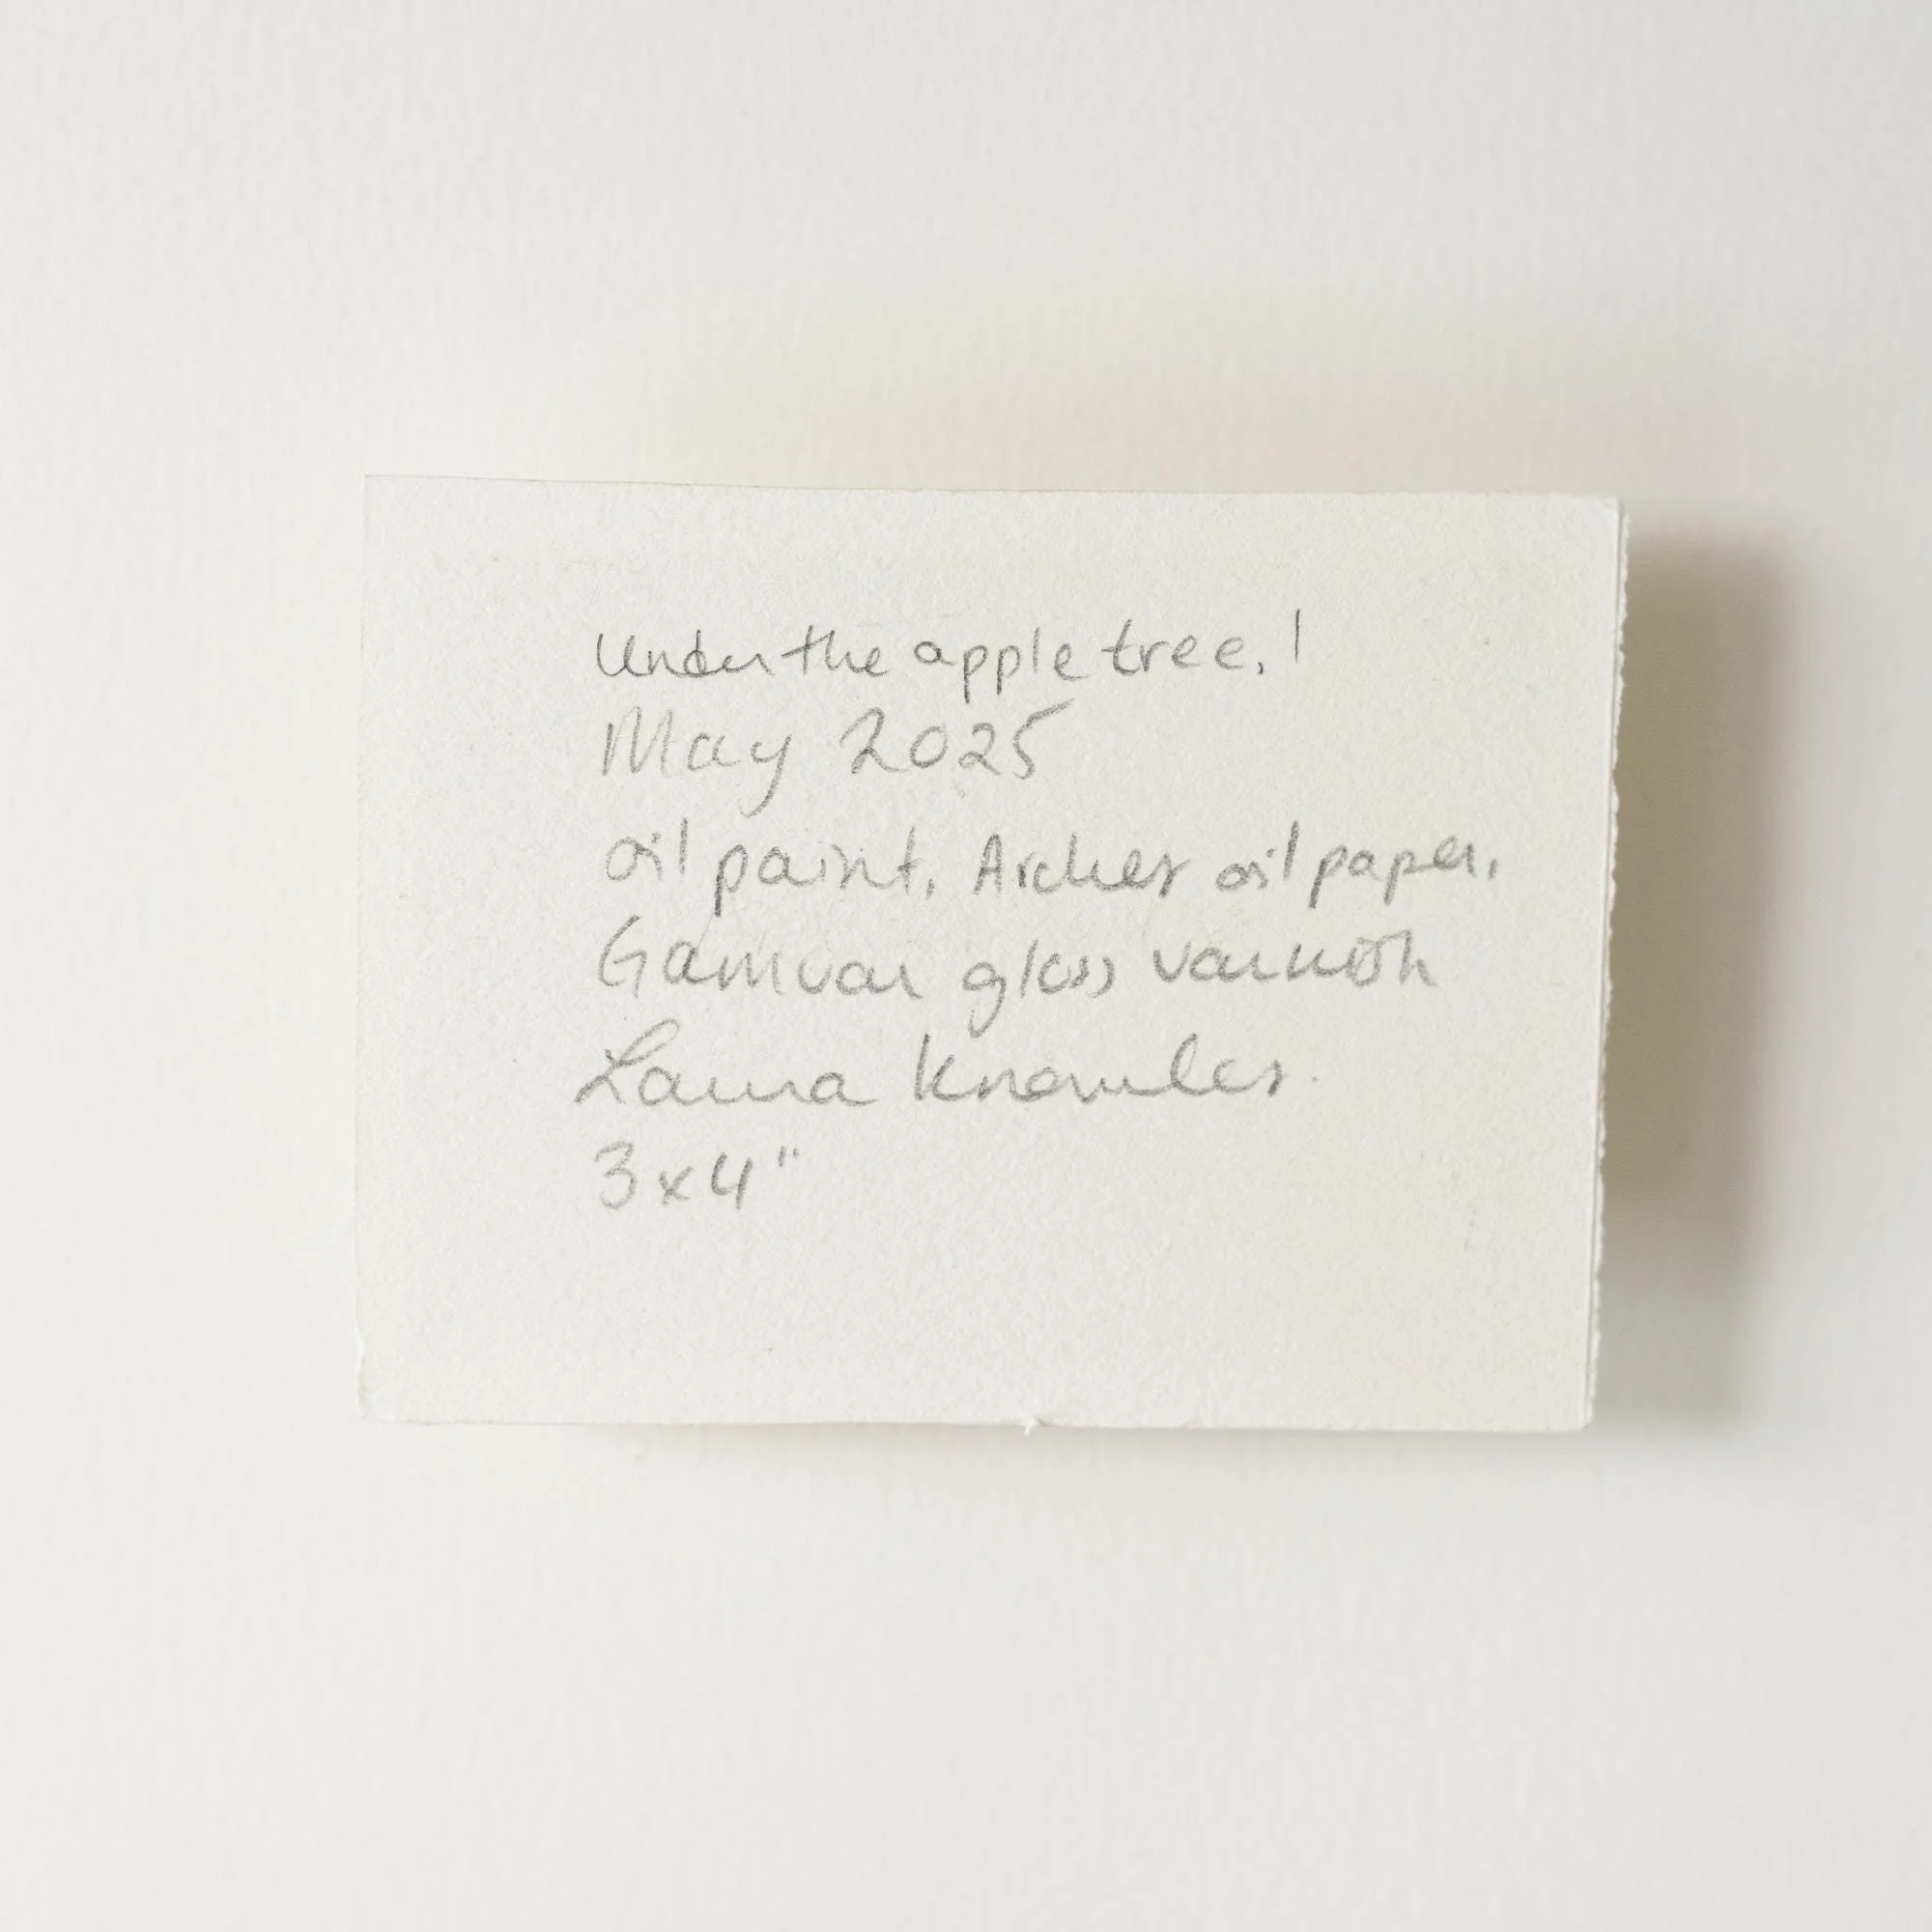 Under the apple tree, 1
May 2025
oil paint, Arches oil paper,
Gamvar gloss varnish
Laura Knowles.
3x4"